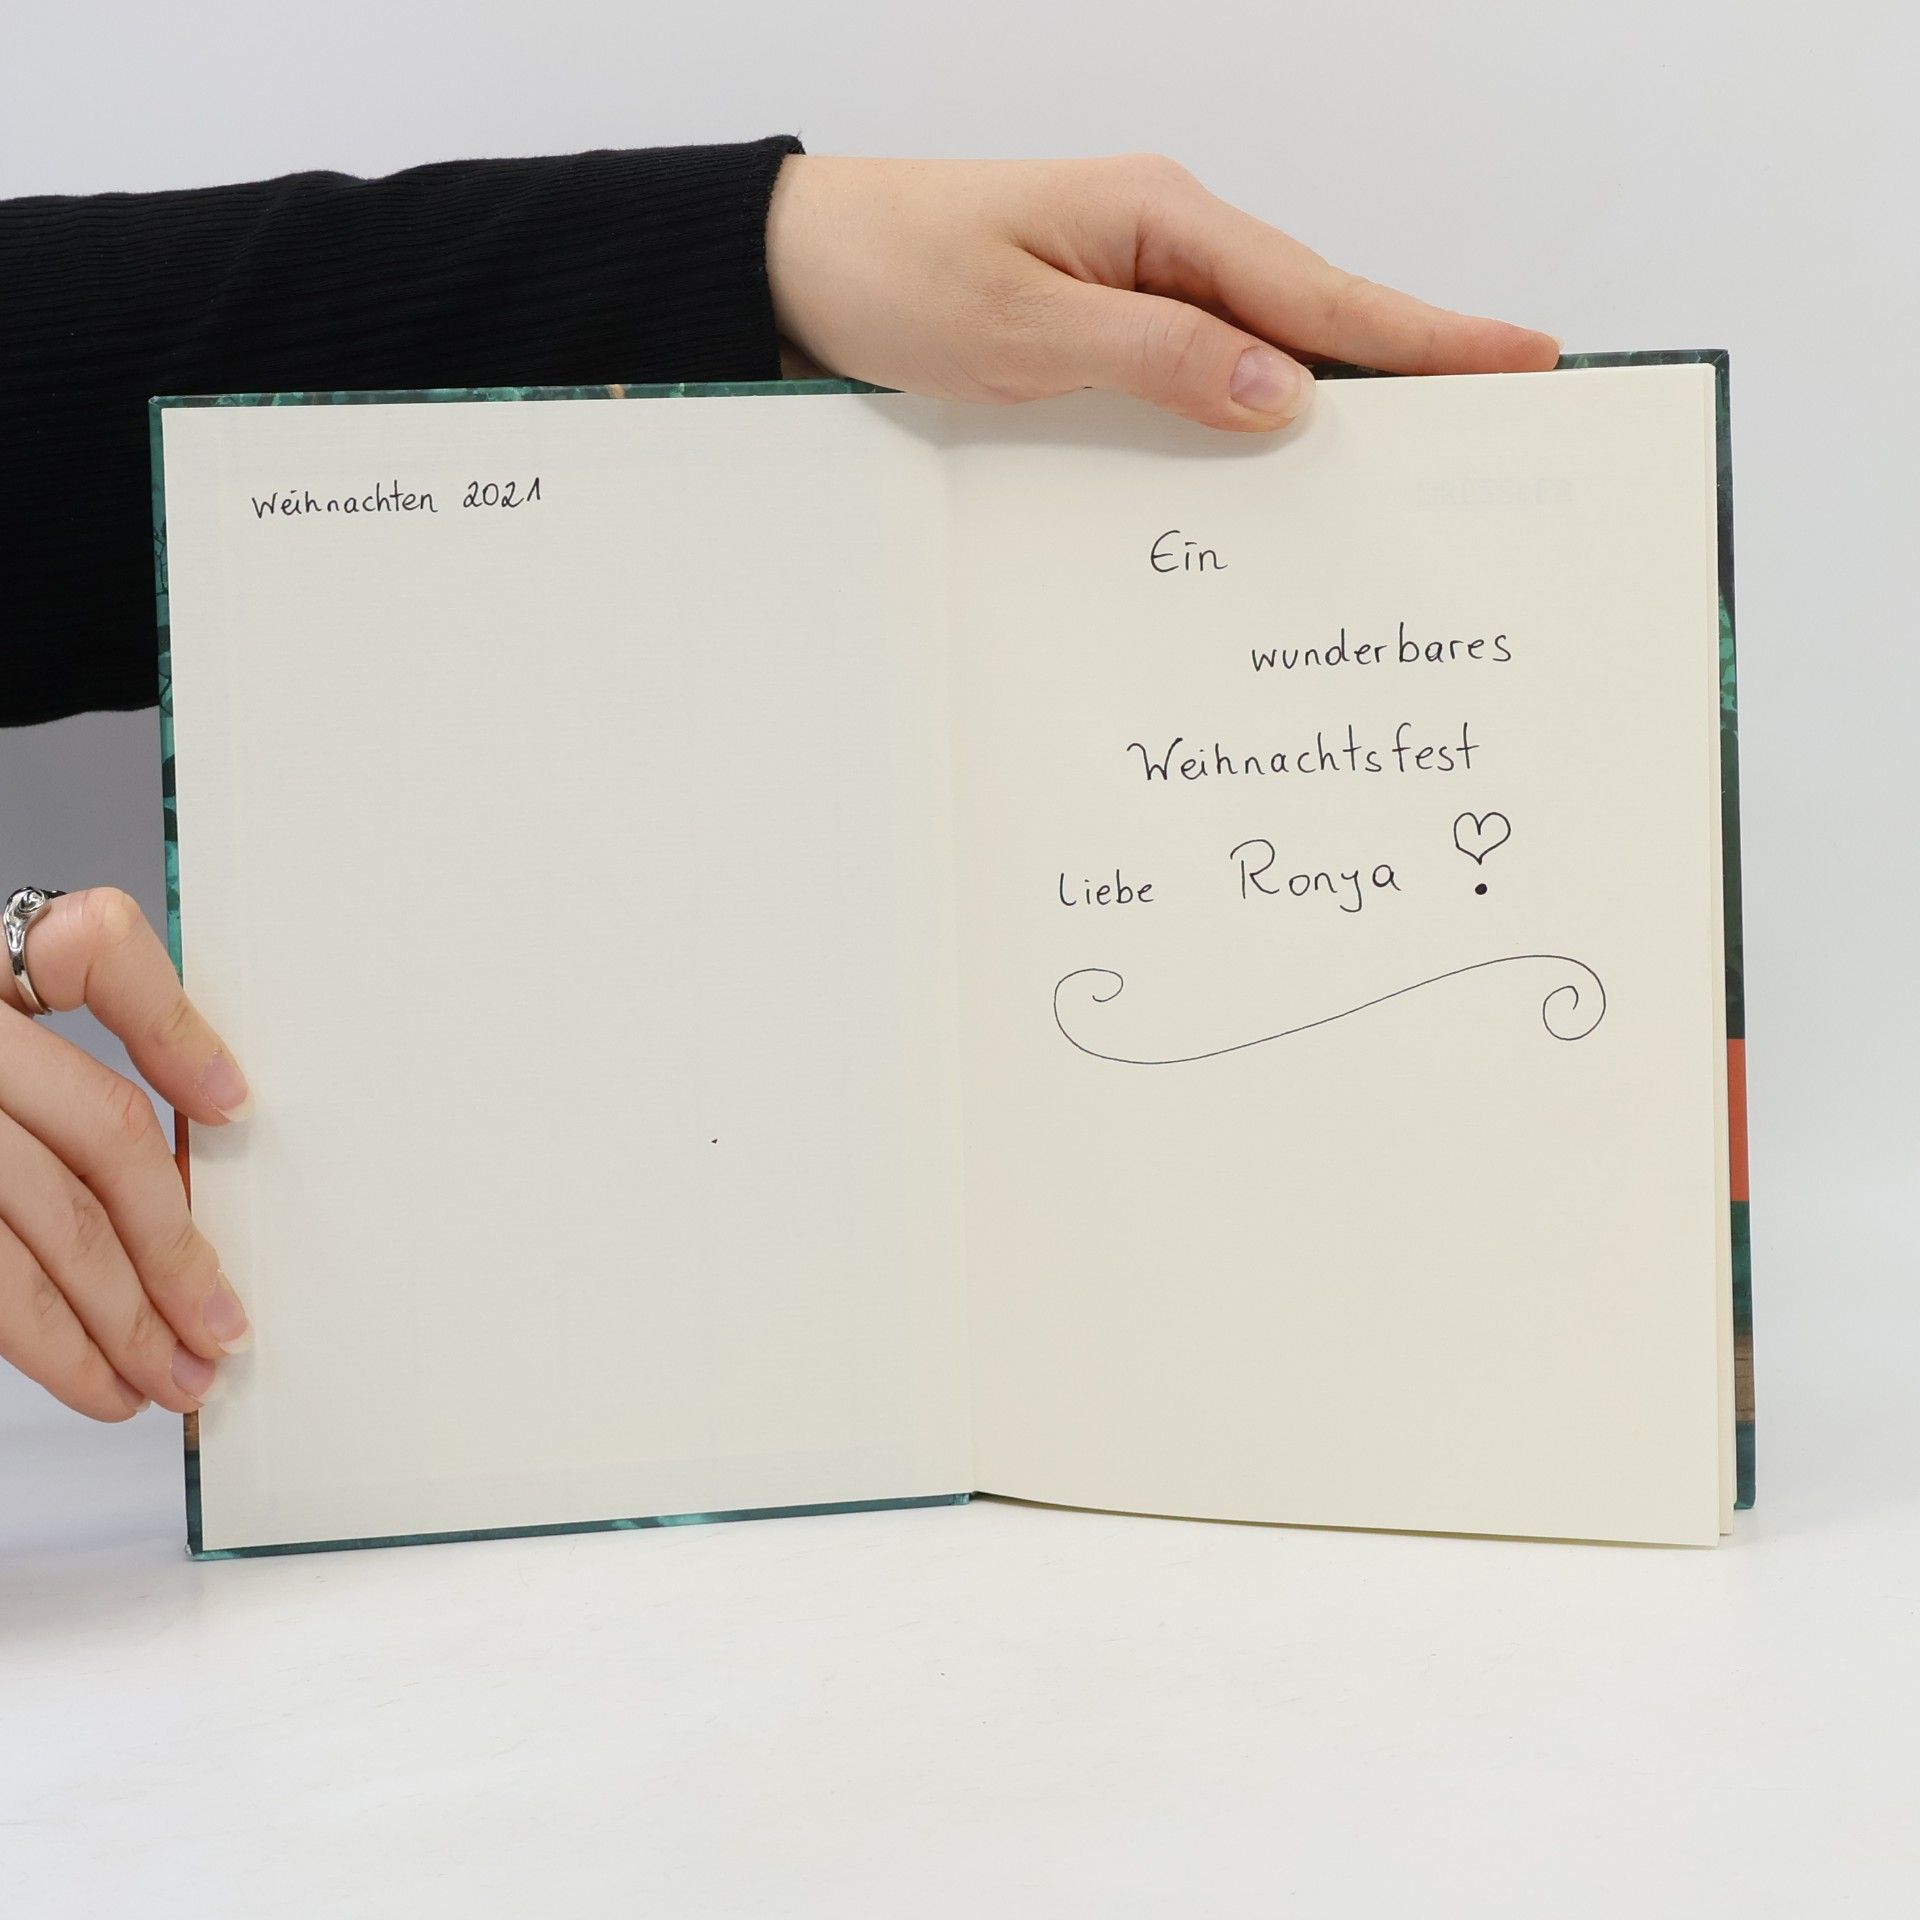 Weihnachten 2021
Ein
wunderbares
Weihnachtsfest
liebe Ronya